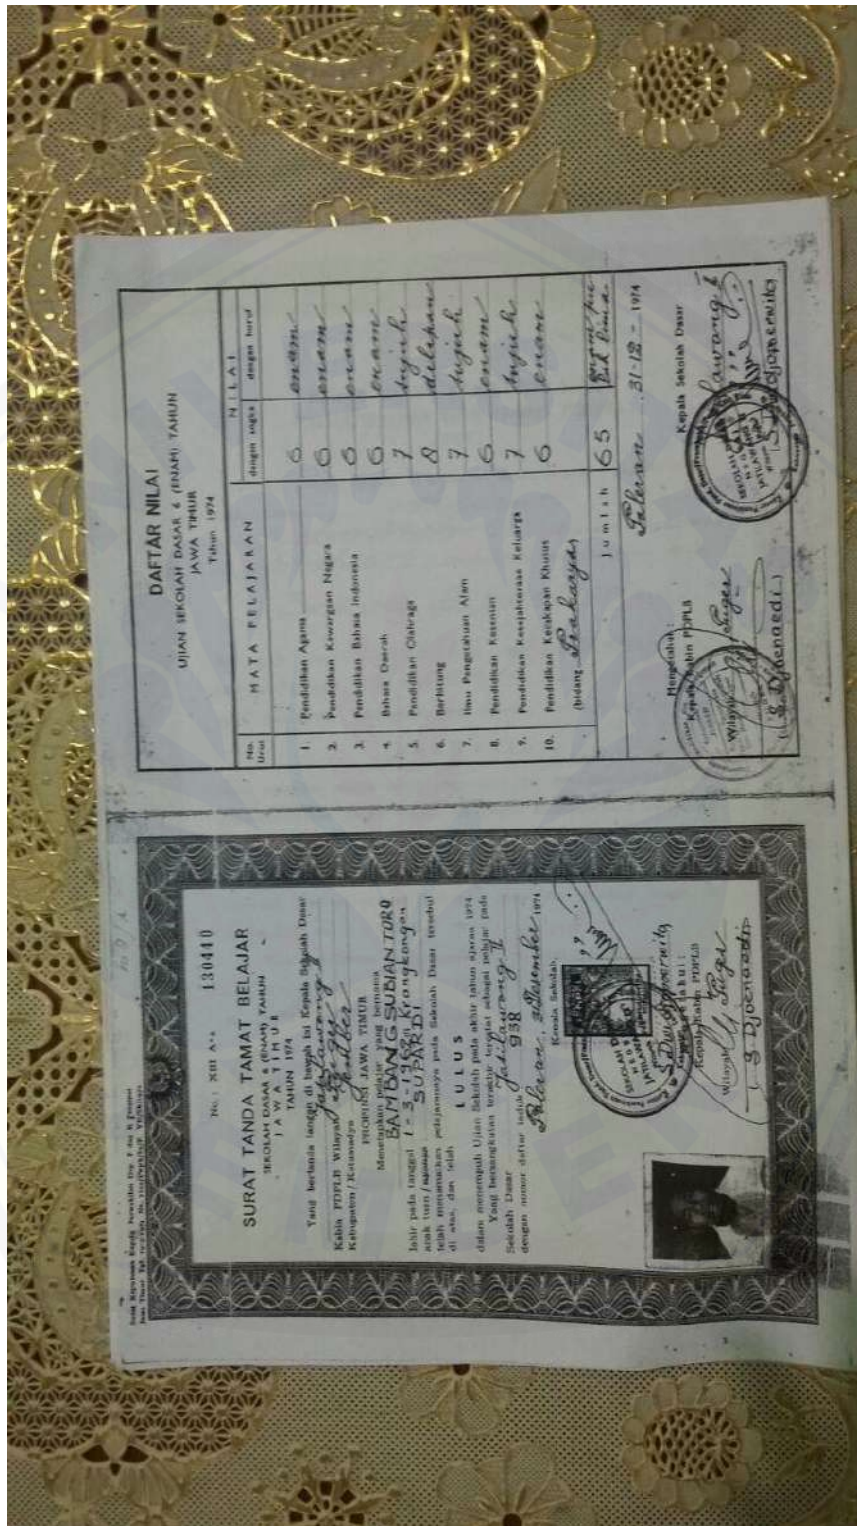 No.: XIII Aaa 130440
SURAT TANDA TAMAT BELAJAR
SEKOLAH DASAR 6 (ENAM) TAHUN
JAWA TIMUR
TAHUN 1974
Yang bertanda tangan di bawah ini Kepala Sekolah Dasar
Jatilawang II
Kabin PDPLB Wilayah Puger
Kabupaten / Kotamadya Jember
PROPINSI JAWA TIMUR
Menetapkan pelajar yang bernama
BAMBANG SUBIANTORO
lahir pada tanggal 1-3-1962 Krangkongan
anak SUPARDI
telah menamatkan pelajarannya pada Sekolah Dasar tersebut
di atas, dan telah
LULUS
dalam menempuh Ujian Sekolah pada akhir tahun ajaran 1974
Yang bersangkutan terakhir tercatat sebagai pelajar pada
Sekolah Dasar Jatilawang II
dengan nomor daftar induk 938
Paleran, 31 Desember 1974
Kepala Sekolah,
Kepala Kabin PDPLB
Wilayah Puger
(S. Djoenaedi)
DAFTAR NILAI
UJIAN SEKOLAH DASAR 6 (ENAM) TAHUN
JAWA TIMUR
Tahun 1974
No. Urut MATA PELAJARAN NILAI
dengan angka dengan huruf
1. Pendidikan Agama 6 enam
2. Pendidikan Kewargaan Negara 6 enam
3. Pendidikan Bahasa Indonesia 6 enam
4. Bahasa Daerah 6 enam
5. Pendidikan Olahraga 7 tujuh
6. Berhitung 8 delapan
7. Ilmu Pengetahuan Alam 7 tujuh
8. Pendidikan Kesenian 6 enam
9. Pendidikan Kesejahteraan Keluarga 7 tujuh
10. Pendidikan Kecakapan Khusus 6 enam
(bidang Prakarya)
Jumlah 65 enam puluh lima
Paleran 31-12-1974
Mengetahui :
Kepala Kabin PDPLB
Wilayah Puger
(S. Djoenaedi)
Kepala Sekolah Dasar
Jatilawang II